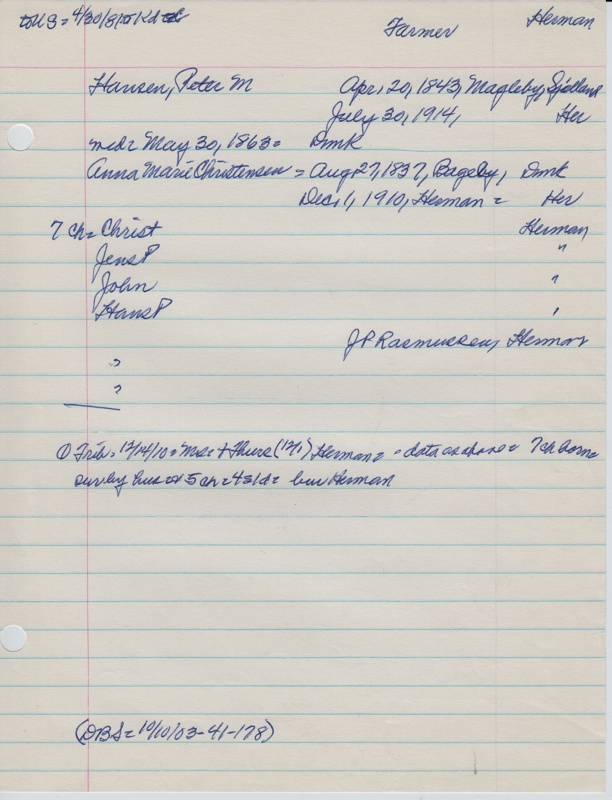 to US = 4/30/81 to Farmer Herman
Hansen, Peter M Apr, 20, 1843, Magleby, Sjelland
July 30, 1914, Her
md = May 30, 1863 = Dmk
Anna Marie Christensen = Aug 27, 1837, Bageby, Dmk
Dec, 1, 1910, Herman = Her
7 ch = Christ Herman
Jens P "
John "
Hans P "
J P Rasmussen, Herman
?
?
① Trib = 12/14/10 = Mrs + Thurs (12/1) Herman = - data as above = 7 ch born =
surv by hus + 5 ch = 4 s 1 d = bur Herman
(DBS = 10/10/03-41-178)